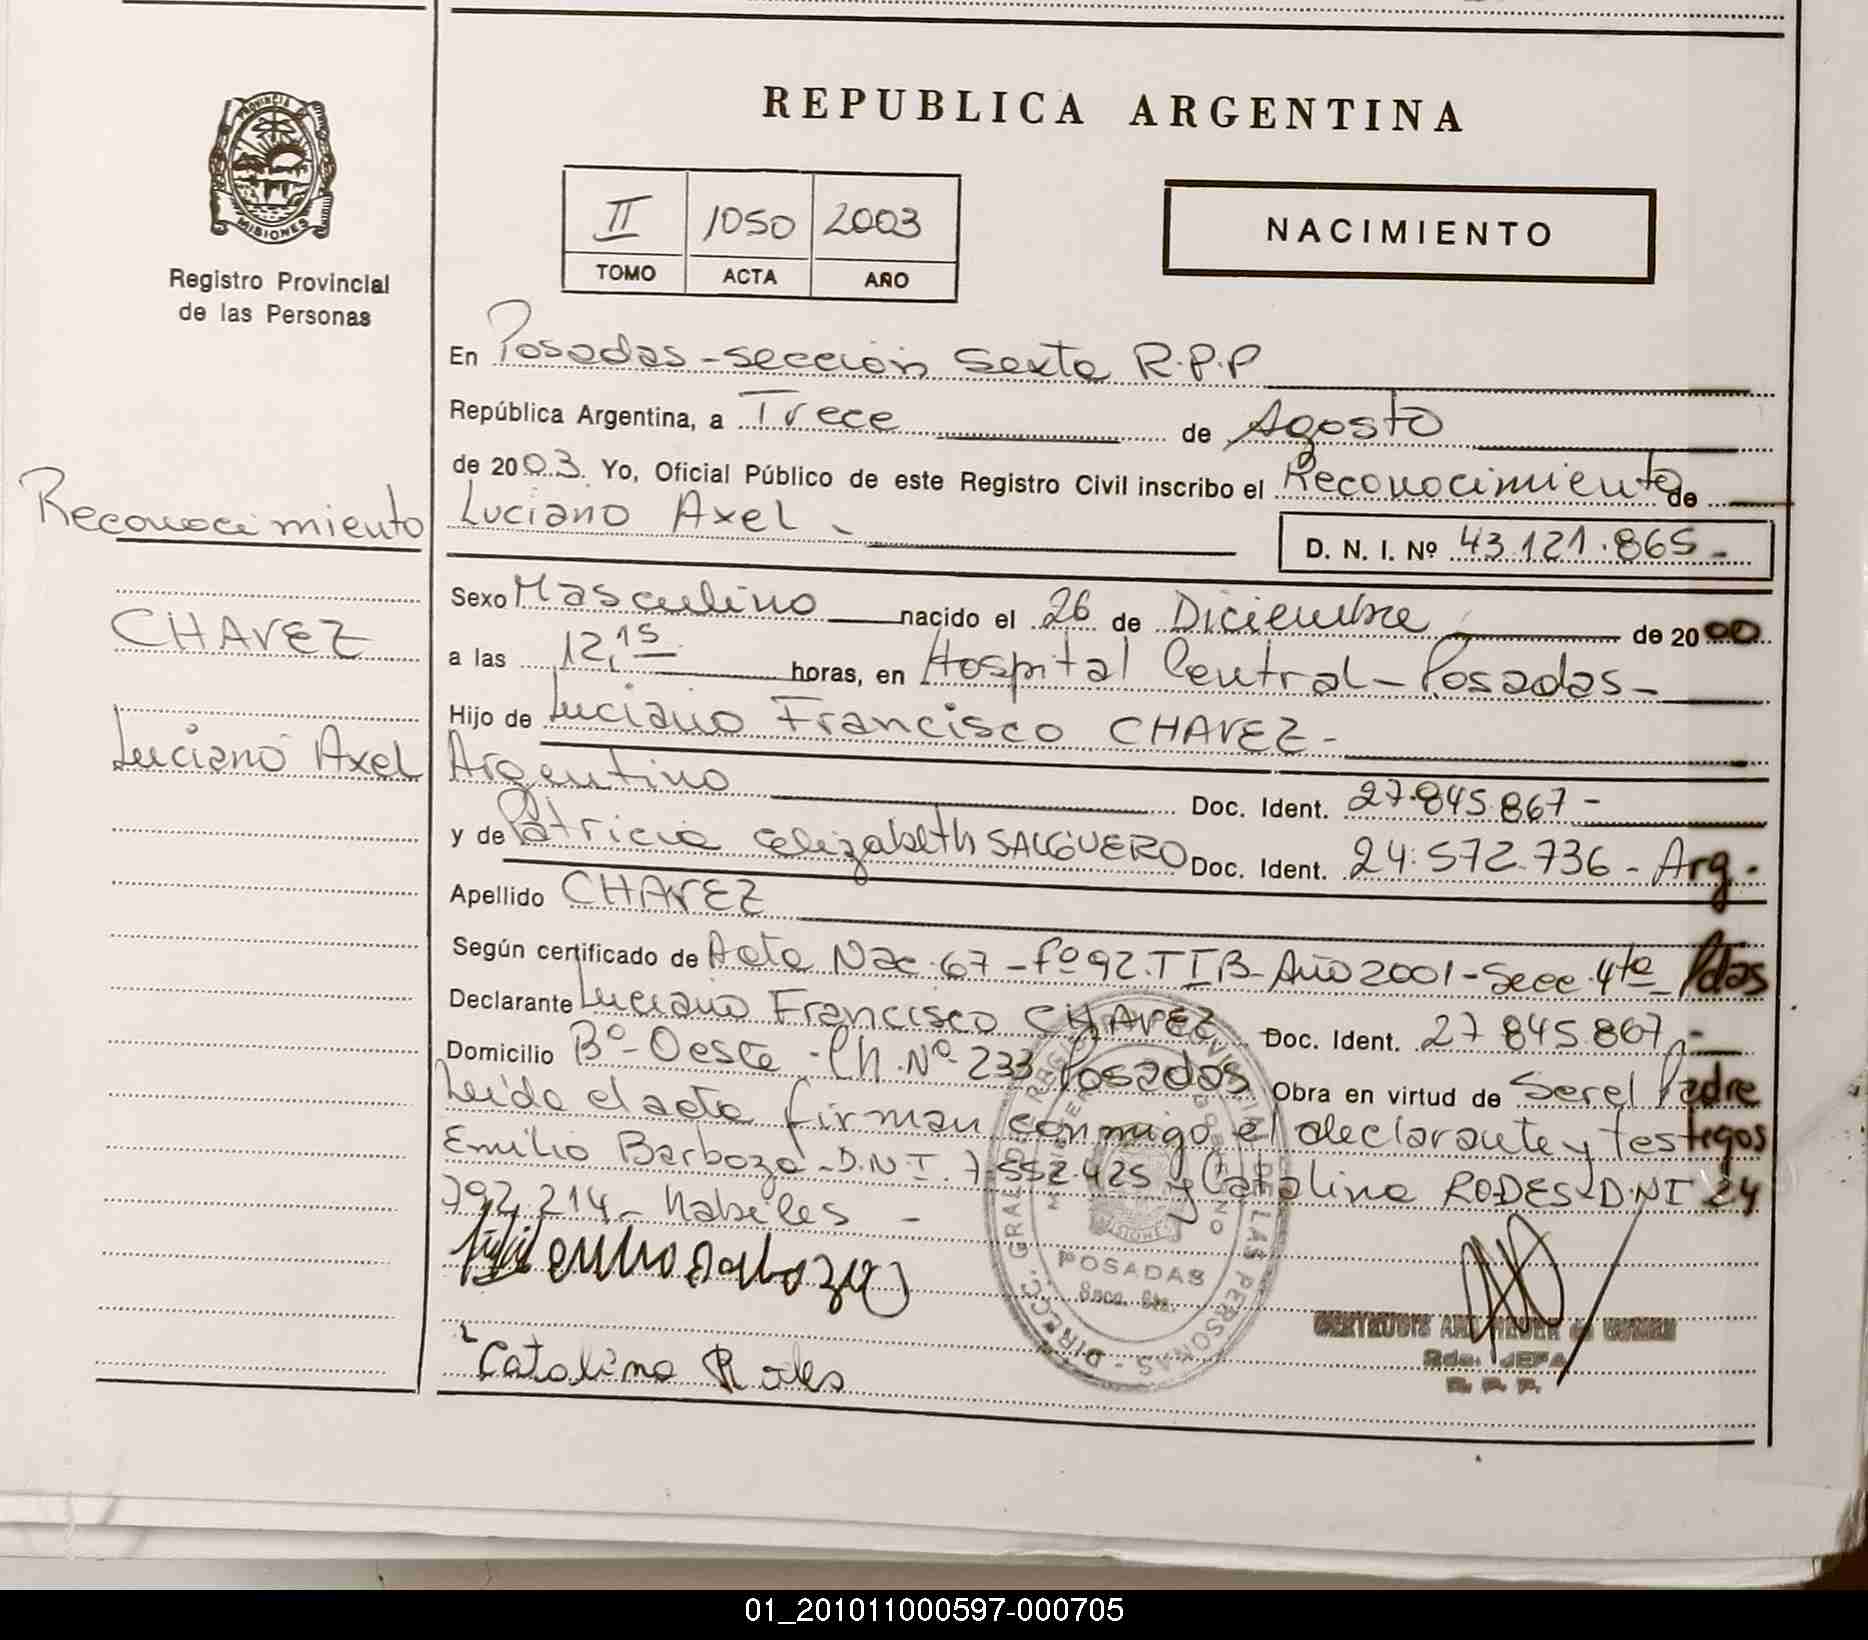 REPUBLICA ARGENTINA
PROVINCIA DE
MISIONES
Registro Provincial
de las Personas
II 1050 2003
TOMO ACTA AÑO
NACIMIENTO
En Posadas - sección Sexta R.P.P
República Argentina, a Trece de Agosto
de 2003. Yo, Oficial Público de este Registro Civil inscribo el Reconocimiento de
Luciano Axel - D. N. I. Nº 43.121.865 -
Reconocimiento
CHAVEZ
Luciano Axel
Sexo Masculino nacido el 26 de Diciembre de 2000
a las 12,15 horas, en Hospital Central - Posadas -
Hijo de Luciano Francisco CHAVEZ -
Argentino Doc. Ident. 27.845.867 -
y de Patricia Elizabeth SALGUERO Doc. Ident. 24.572.736 - Arg.
Apellido CHAVEZ
Según certificado de Acta Nac. 67 - Fº 92. T I B - Año 2001 - Secc. 4ta Pdas
Declarante Luciano Francisco CHAVEZ Doc. Ident. 27 845.867. -
Domicilio Bº - Oeste - Ch. Nº 233 Posadas Obra en virtud de Ser el Padre
Leída el acta firman conmigo el declarante y testigos
Emilio Barboza - D.N.I. 7.552.425 y Catalina RODES - D.NI 24
792.214 - habiles -
Emilio Barboza
Catalina Rodes
DIRECC. GRAL. DEL REG. PROVINCIAL DE LAS PERSONAS
MINISTERIO GOBIERNO
MISIONES
POSADAS
Secc. 6ta.
JEFA
R. P. P.
01_201011000597-000705